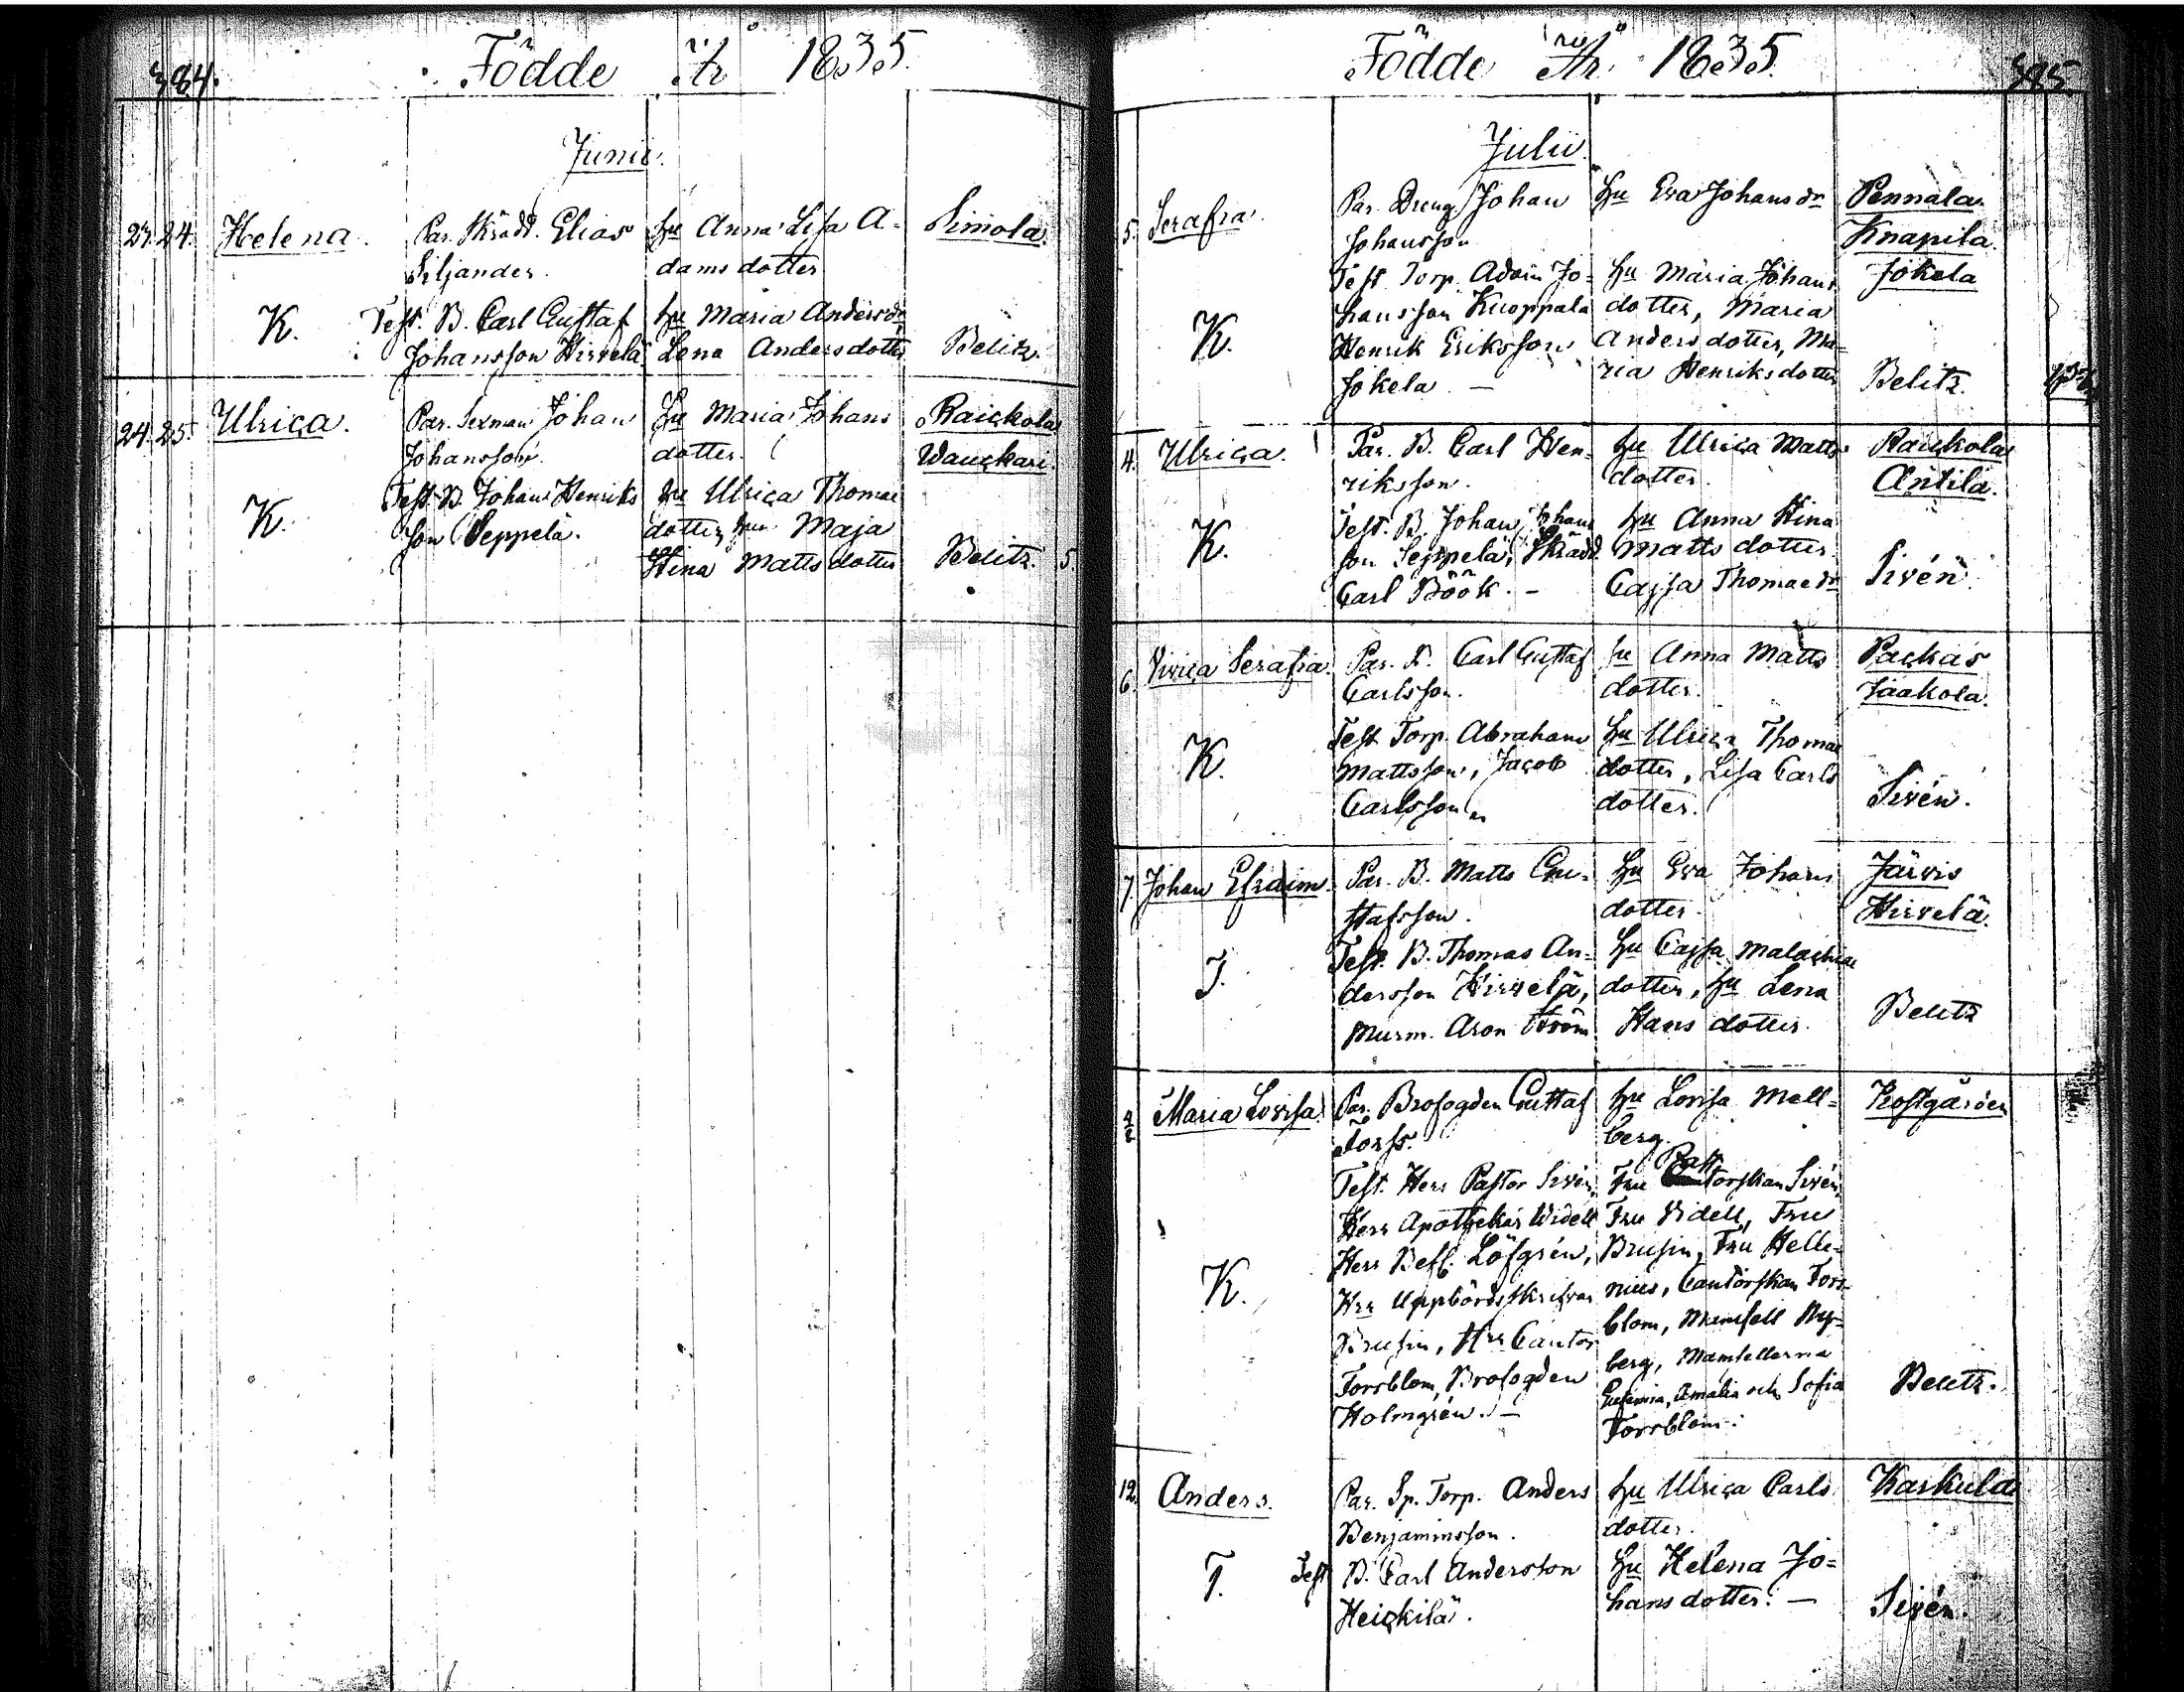 384.
Födde År 1835
Junii.
23. 24. Helena. Par. Skrädd. Elias hu Anna Lisa A- Simola.
Siljander. dams dotter
K. Test. B. Carl Gustaf hu Maria Andersdr
Johansson Hirvelä Lena Andersdotter Belitz.
24. 25. Ulrica. Par. Sexman Johan hu Maria Johans Raickola
Johansson. dotter. Wauckari.
K. Test B. Johan Henriks hu Ulrica Thomae
son Seppelä. dotter, hu Maja
Stina Matts dotter Belitz. 5
385.
Födde År 1835.
Julii
5. Serafia. Par. Dreng Johan hu Eva Johansdr Pennala
Johansson Knapila.
Test. Torp. Adam Jo- hu Maria Johans Jokela
K. hansson Kuoppala dotter, Maria
Henrik Eriksson Andersdotter, Ma-
Jokela. — ria Henriksdotter Belitz.
4. Ulrica. Par. B. Carl Hen- hu Ulrica Matts Raickola
riksson. dotter. Antila.
K. Test. B. Johan Johans hu Anna Stina
son Seppelä, Skrädd. Matts dotter.
Carl Böök. - Cajsa Thomaedr Sivén
6. Vivica Serafia. Par. B. Carl Gustaf hu Anna Matts Packas
Carlsson. dotter. Jaakola.
K. Test Torp. Abraham hu Ulrica Thomae
Mattsson, Jacob dotter, Lisa Carls
Carlsson dotter. Sivén.
7. Johan Efraim. Par. B. Matts Gu- hu Eva Johans Järvis
stafsson. dotter. Hirvelä.
J. Test. B. Thomas An- hu Cajsa Malachiae
dersson Hirvelä, dotter, hu Lena
Murm. Aron Ström Hans dotter. Belitz
Maria Lovisa. Par. Brofogden Gustaf hu Lovisa Mell- Kostgården
Torss. berg.
Test. Herr Pastor Sivén, Fru Pastorskan Sivén,
Herr Apothekar Widell Fru Videll, Fru
Herr Bef. Löfgrén, Brusin, Fru Helle-
K. Hrr Uppbördsskrifvar nius, Cantorskan Forr-
Brusin, Hrr Cantor blom, Mamsell Ny-
Forrblom, Brofogden berg, Mamsellerna
Holmgrén. — Eufemia, Amalia och Sofia Belitz.
Forrblom.
12. Anders. Par. Sp. Torp. Anders hu Ulrica Carls Karkula
Benjaminsson. dotter.
T. Test B. Carl Andersson hu Helena Jo-
Heickilä. hans dotter. — Sivén.